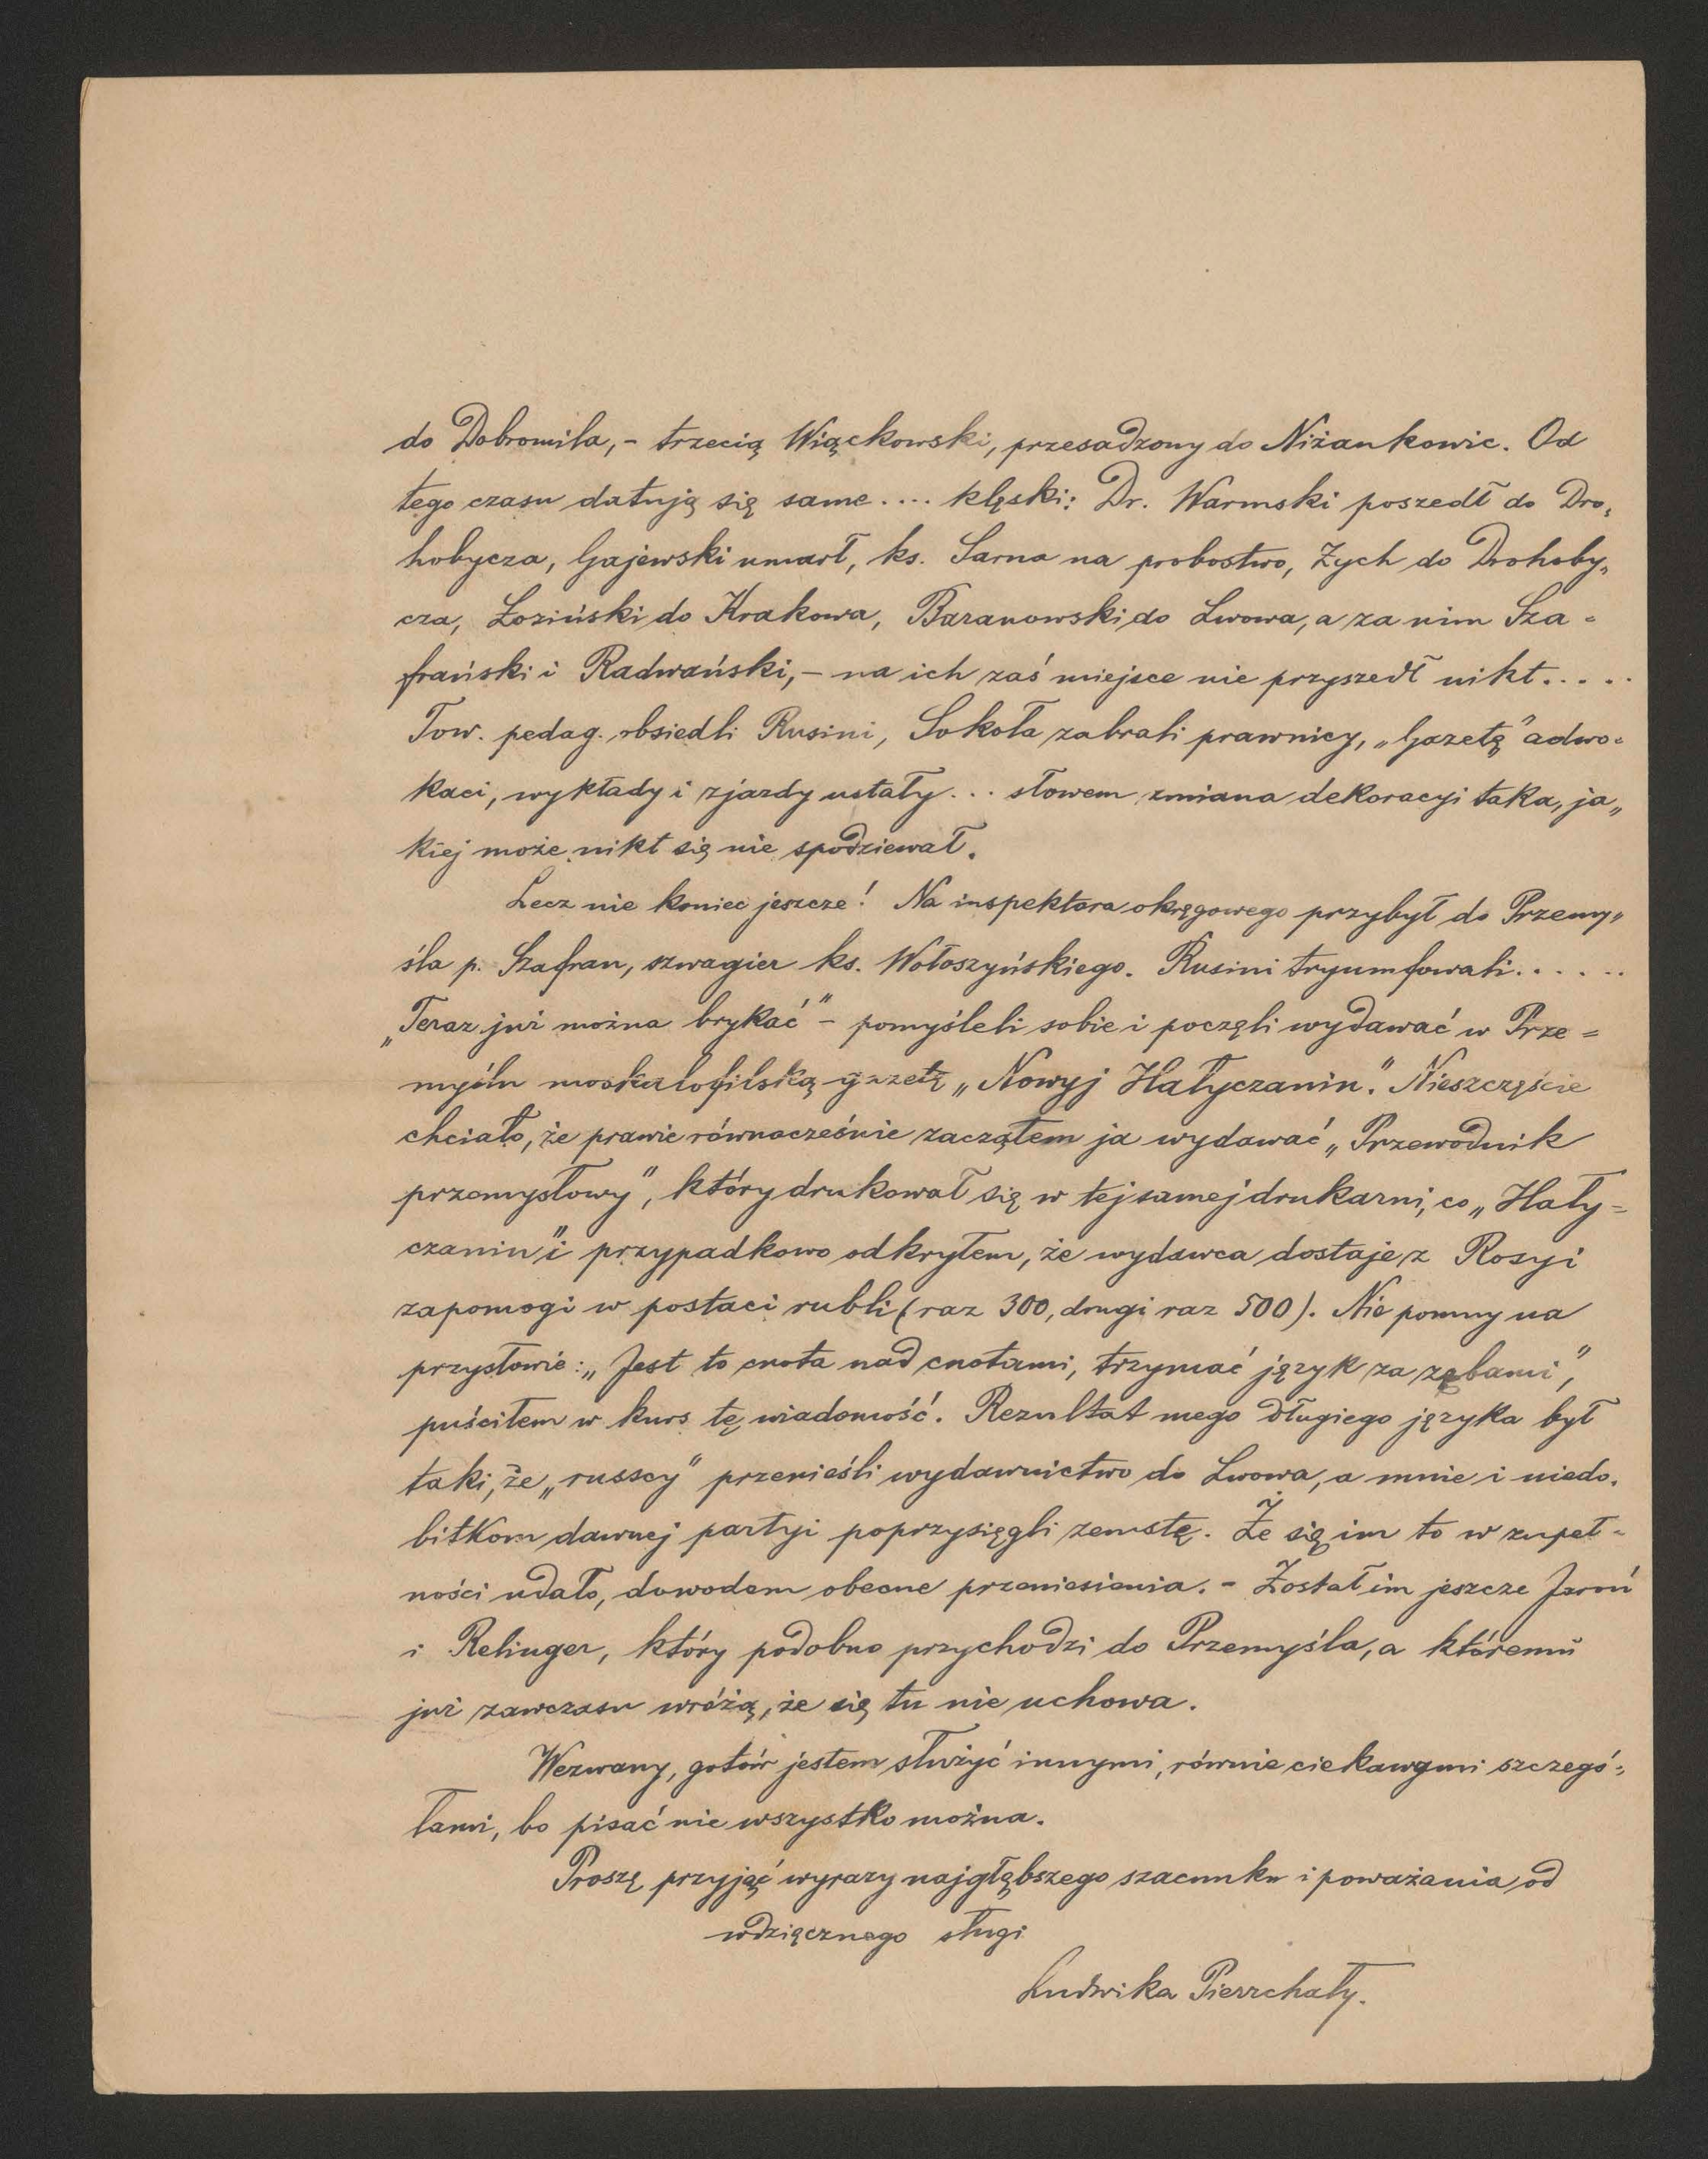 do Dobromila, - trzecią Wiąckowski, przesadzony do Niżankowic. Od
tego czasu datują się same .... klęski: Dr. Warmski poszedł do Dro„
hobycza, Gajewski umarł, ks. Sarna na probostwo, Zych do Drohoby„
cza, Łoziński do Krakowa, Baranowski do Lwowa, a za nim Sza =
frański i Radwański, - na ich zaś miejsce nie przyszedł nikt.....
Tow. pedag. obsiedli Rusini, Sokoła zabrali prawnicy, „Gazetę" adwo=
kaci, wykłady i zjazdy ustały... słowem zmiana dekoracyi taka, ja„
kiej może nikt się nie spodziewał.
Lecz nie koniec jeszcze! Na inspektora okręgowego przybył do Przemy„
śla p. Szafran, szwagier ks. Wołoszyńskiego. Rusini tryumfowali......
„Teraz już można brykać" - pomyśleli sobie i poczęli wydawać w Prze =
myślu moskalofilską gazetę „Nowyj Hałyczanin." Nieszczęście
chciało, że prawie równocześnie zacząłem ja wydawać „Przewodnik
przemysłowy", który drukował się w tej samej drukarni, co „Hały=
czanin" i przypadkowo odkryłem, że wydawca dostaje z Rosyi
zapomogi w postaci rubli (raz 300, drugi raz 500). Nie pomny na
przysłowie: „Jest to cnota nad cnotami, trzymać język za zębami",
puściłem w kurs tę wiadomość. Rezultat mego długiego języka był
taki, że „russcy" przenieśli wydawnictwo do Lwowa, a mnie i niedo„
bitkom dawnej partyi poprzysięgli zemstę. Że się im to w zupeł=
ności udało, dowodem obecne przeniesienia. - Został im jeszcze Jaroń
i Relinger, który podobno przychodzi do Przemyśla, a któremu
już zawczasu wróżą, że się tu nie uchowa.
Wezwany, gotów jestem służyć innymi, równie ciekawymi szczegó„
łami, bo pisać nie wszystko można.
Proszę przyjąć wyrazy najgłębszego szacunku i poważania od
wdzięcznego sługi
Ludwika Pierzchały.